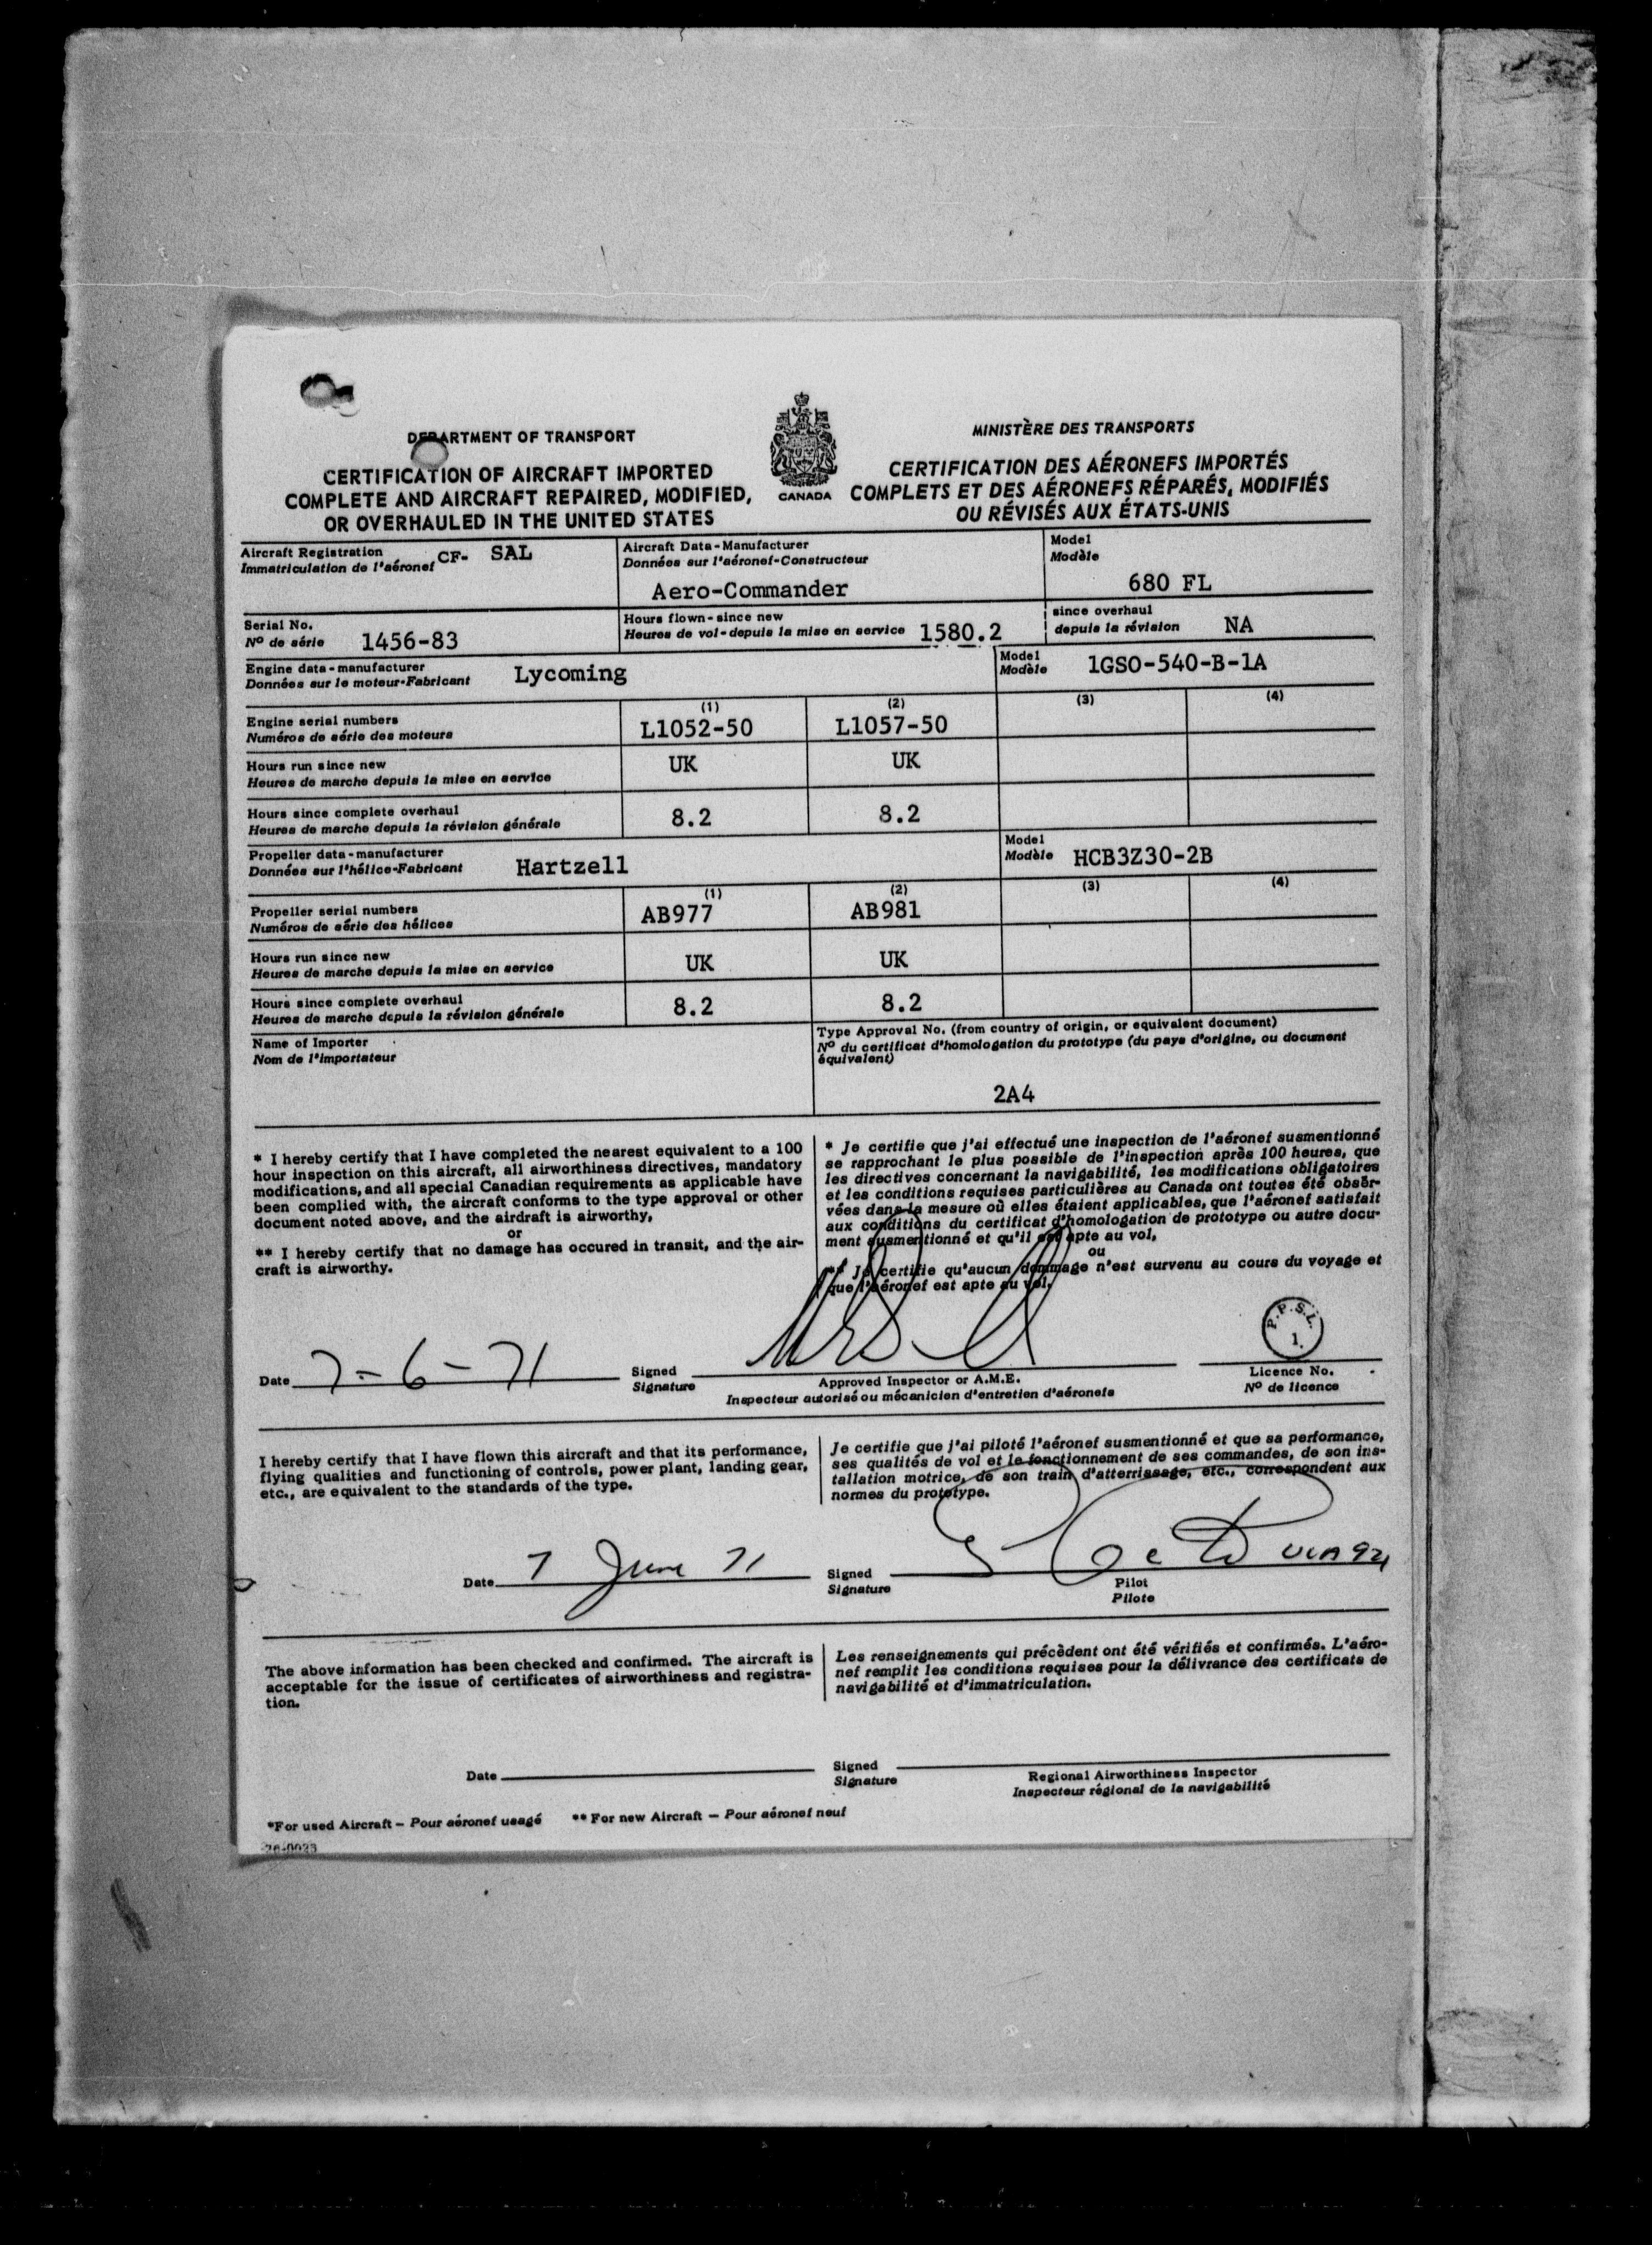 DEPARTMENT OF TRANSPORT
CERTIFICATION OF AIRCRAFT IMPORTED
COMPLETE AND AIRCRAFT REPAIRED, MODIFIED,
OR OVERHAULED IN THE UNITED STATES
CANADA
MINISTÈRE DES TRANSPORTS
CERTIFICATION DES AÉRONEFS IMPORTÉS
COMPLETS ET DES AÉRONEFS RÉPARÉS, MODIFIÉS
OU RÉVISÉS AUX ÉTATS-UNIS
Aircraft Registration
Immatriculation de l'aéronef CF- SAL
Aircraft Data-Manufacturer
Données sur l'aéronef-Constructeur
Aero-Commander
Model
Modèle
680 FL
Serial No.
Nº de série 1456-83
Hours flown-since new
Heures de vol-depuis la mise en service 1580.2
since overhaul
depuis la révision NA
Engine data-manufacturer
Données sur le moteur-Fabricant Lycoming
Model
Modèle 1GSO-540-B-1A
(1) (2) (3) (4)
Engine serial numbers
Numéros de série des moteurs L1052-50 L1057-50
Hours run since new
Heures de marche depuis la mise en service UK UK
Hours since complete overhaul
Heures de marche depuis la révision générale 8.2 8.2
Propeller data-manufacturer
Données sur l'hélice-Fabricant Hartzell
Model
Modèle HCB3Z30-2B
(1) (2) (3) (4)
Propeller serial numbers
Numéros de série des hélices AB977 AB981
Hours run since new
Heures de marche depuis la mise en service UK UK
Hours since complete overhaul
Heures de marche depuis la révision générale 8.2 8.2
Name of Importer
Nom de l'importateur
Type Approval No. (from country of origin, or equivalent document)
Nº du certificat d'homologation du prototype (du pays d'origine, ou document
équivalent)
2A4
* I hereby certify that I have completed the nearest equivalent to a 100
hour inspection on this aircraft, all airworthiness directives, mandatory
modifications, and all special Canadian requirements as applicable have
been complied with, the aircraft conforms to the type approval or other
document noted above, and the airdraft is airworthy,
or
** I hereby certify that no damage has occured in transit, and the air-
craft is airworthy.
* Je certifie que j'ai effectué une inspection de l'aéronef susmentionné
se rapprochant le plus possible de l'inspection après 100 heures, que
les directives concernant la navigabilité, les modifications obligatoires
et les conditions requises particulières au Canada ont toutes été obsér-
vées dans la mesure où elles étaient applicables, que l'aéronef satisfait
aux conditions du certificat d'homologation de prototype ou autre docu-
ment susmentionné et qu'il est apte au vol,
ou
** Je certifie qu'aucun dommage n'est survenu au cours du voyage et
que l'aéronef est apte au vol.
Date 7-6-71
Signed
Signature
Approved Inspector or A.M.E.
Inspecteur autorisé ou mécanicien d'entretien d'aéronefs
P.P.S.L.
1.
Licence No.
Nº de licence
I hereby certify that I have flown this aircraft and that its performance,
flying qualities and functioning of controls, power plant, landing gear,
etc., are equivalent to the standards of the type.
Je certifie que j'ai piloté l'aéronef susmentionné et que sa performance,
ses qualités de vol et le fonctionnement de ses commandes, de son ins-
tallation motrice, de son train d'atterrissage, etc., correspondent aux
normes du prototype.
Date 7 June 71
Signed
Signature
Pilot
Pilote
The above information has been checked and confirmed. The aircraft is
acceptable for the issue of certificates of airworthiness and registra-
tion.
Les renseignements qui précèdent ont été vérifiés et confirmés. L'aéro-
nef remplit les conditions requises pour la délivrance des certificats de
navigabilité et d'immatriculation.
Date
Signed
Signature
Regional Airworthiness Inspector
Inspecteur régional de la navigabilité
*For used Aircraft - Pour aéronef usagé ** For new Aircraft - Pour aéronef neuf
26-0023